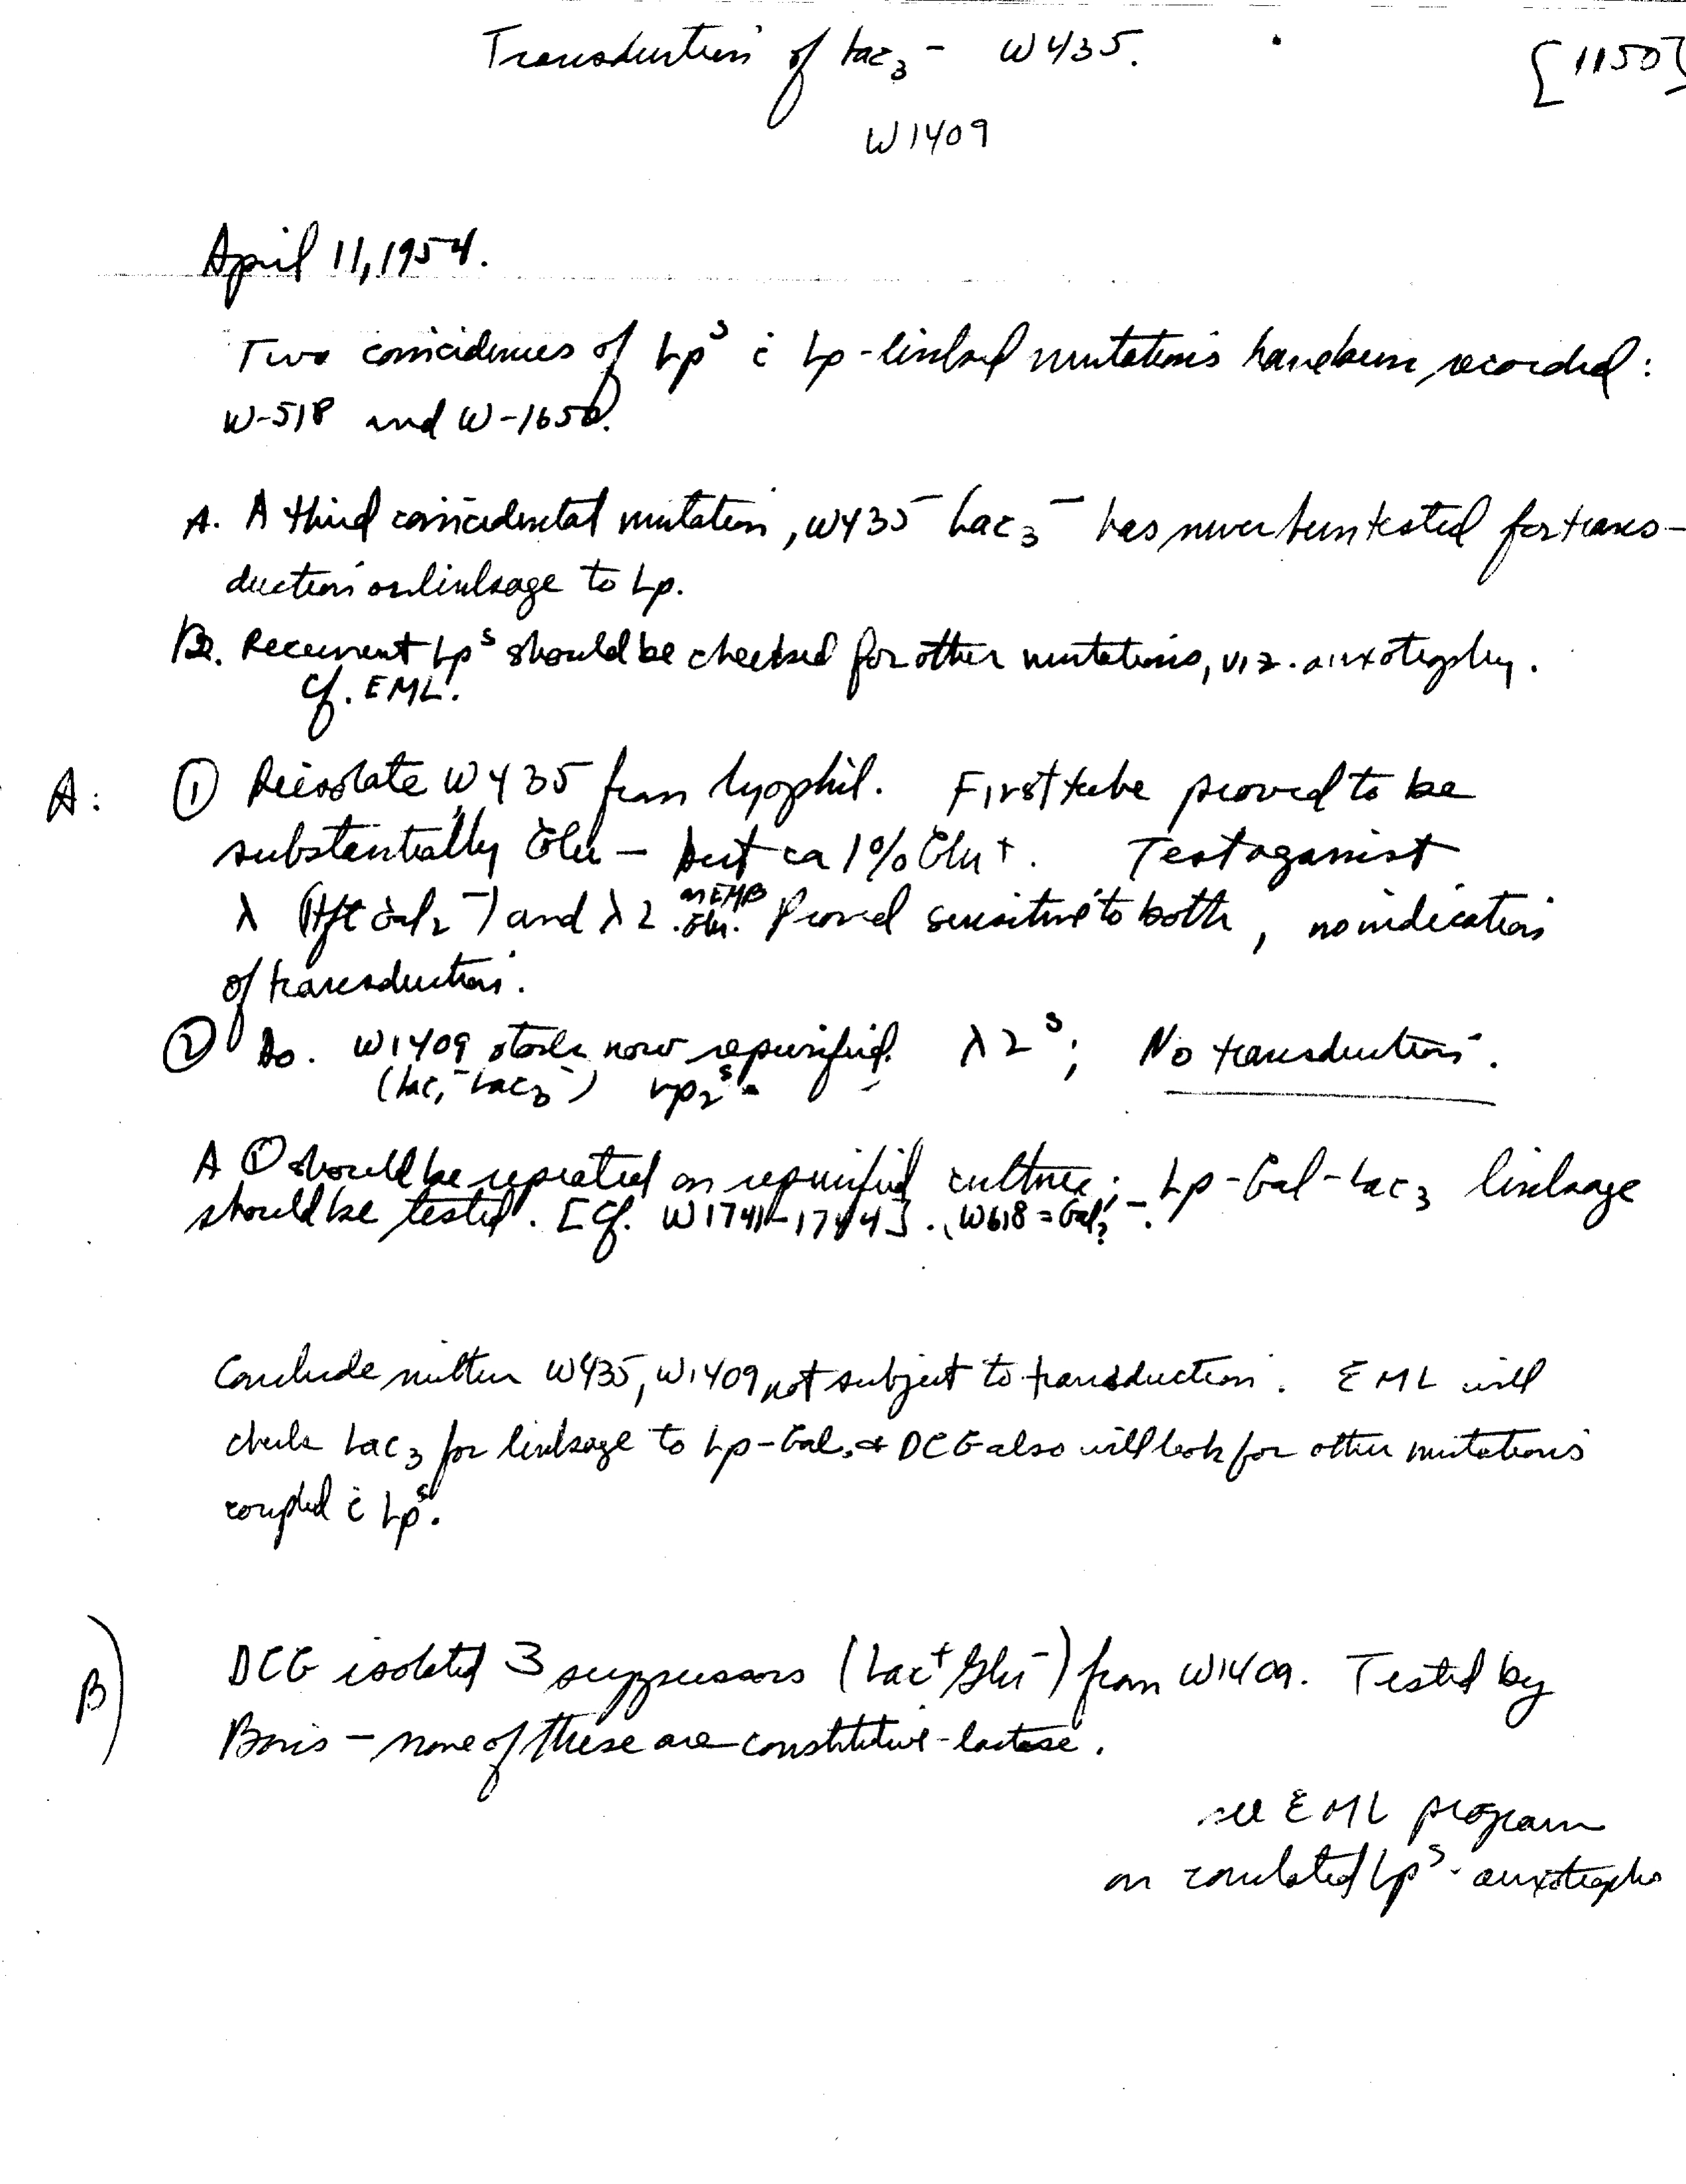 Transduction of Lac₃- W435.
[1150]
W1409
April 11, 1954.
Two coincidences of Lpˢ c̄ Lp-linked mutations have been recorded:
W-518 and W-1650.
A. A third coincidental mutation, W435 Lac₃⁻ has never been tested for trans-
duction or linkage to Lp.
B. Recurrent Lpˢ should be checked for other mutations, viz. auxotrophy.
cf. EML.
A: ① Reisolate W435 from lyophil. First tube proved to be
substantially Glu- but ca 1% Glu+. Test against
λ (Hft Gal₂⁻) and λ2 on EMB Glu. Proved sensitive to both, no indication
of transduction.
② Do. W1409 stock now repurified. λ2ˢ; No transduction.
(Lac₁⁻Lac₃⁻) Lp₂ˢ
A ① should be repeated on repurified culture; Lp-Gal-Lac₃ linkage
should be tested. [Cf. W1741-1744]. W618 = Gal?-.
Conclude neither W435, W1409 not subject to transduction. EML will
check Lac₃ for linkage to Lp-Gal, & DCG also will look for other mutations
coupled c̄ Lpˢ.
B) DCG isolated 3 suppressors (Lac⁺ Glu⁻) from W1409. Tested by
Boris - none of these are constitutive-lactase.
see EML program
on correlated Lpˢ - auxotrophs